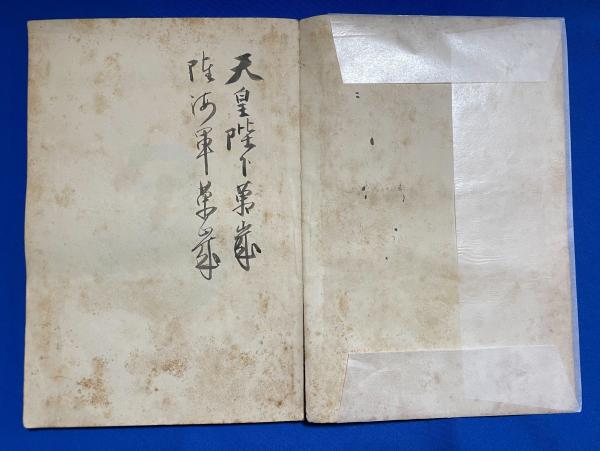 天皇陛下萬歳
陸海軍萬歳